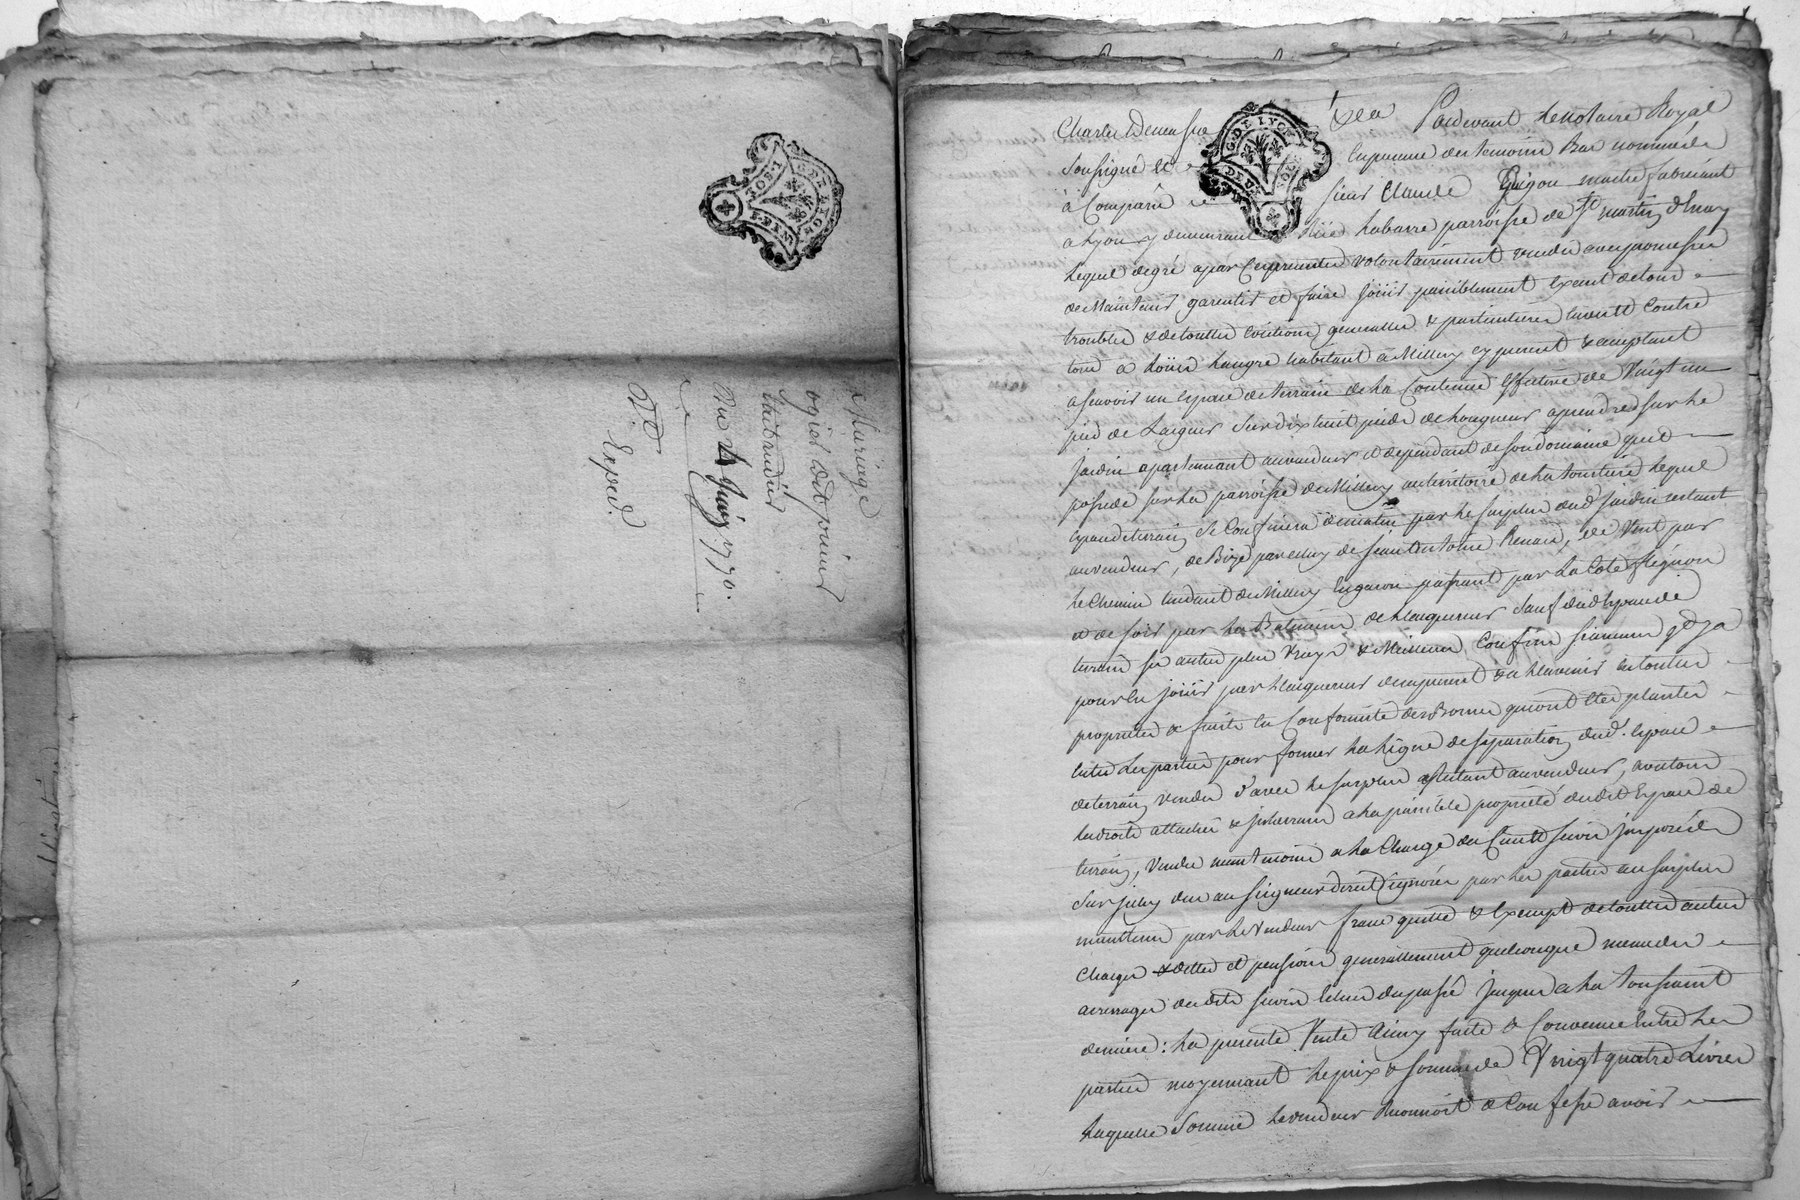 Mariage
ogier Dit poirieux
Du 4 Juin 1770.
Expéd.
G. DE LYON
DEUX SOLS
Pardevant Le Notaire Royal
Soussigné et en presence des temoins Bas nommés
à Comparu sieur Claude maitre fabriquant
a Lyon y demeurant Rüe Labarre parroisse de St martin D'Enay
Lequel de gré a par Ces presentes volontairement vendu avec promesse
de Maintenir garentir et faire joüir paisiblement Exent de tous
troubles & de touttes Evictions generalles & particulieres Envers et Contre
tous a habitant a Millery cy present & acceptant
a scavoir un Espace de terrain de La Contenue Effective de Vingt un
pied de Largeur Sur dix huit pieds de Longueur a prendre sur Le
Jardin apartenant au vendeur et dependant de son domaine quil
possede sur La parroisse de Millery au territoire de La tourtiere Lequel
Espace de terrain Se Confinera de matin par Le surplus dud. Jardin restant
au vendeur, de Bize par celuy de sieur Antoine Renard, de Vent par
Le Chemin tendant de Millery passant par La Cote
et de soir par Les Batiments de Lacquereur Sauf dud. Espace de
terrain ses autres plus Vrays & Meilleurs Confins si aucuns y a
pour En joüir par Lacquereur des a present & a Lavenir En toutte
propriété & suite En Conformité des Bornes qui ont Eté plantées
Entre Les parties pour former La Ligne de separation dud. Espace
de terrain vendu d'avec Le surplus restant au vendeur, avec tous
Les droits attachés & inherrants a La paisible propriété dudit Espace de
terrain, Vendu neantmoins a La Charge du Cens et servis imposés
Sur iceluy due au seigneur direct ignorés par Les parties au surplus
maintenu par Le Vendeur franc quitte & Exempt de touttes autres
Charges dettes et pensions generallement quelconque meme des
arrerages desdits servis Echus du passé Jusques a La toussaint
derniere: La presente Vente Ainsy faite & Convenue Entre Les
parties moyennant Le prix & somme de Vingt quatre Livres
Laquelle Somme Le vendeur Reconnoit & Confesse avoir